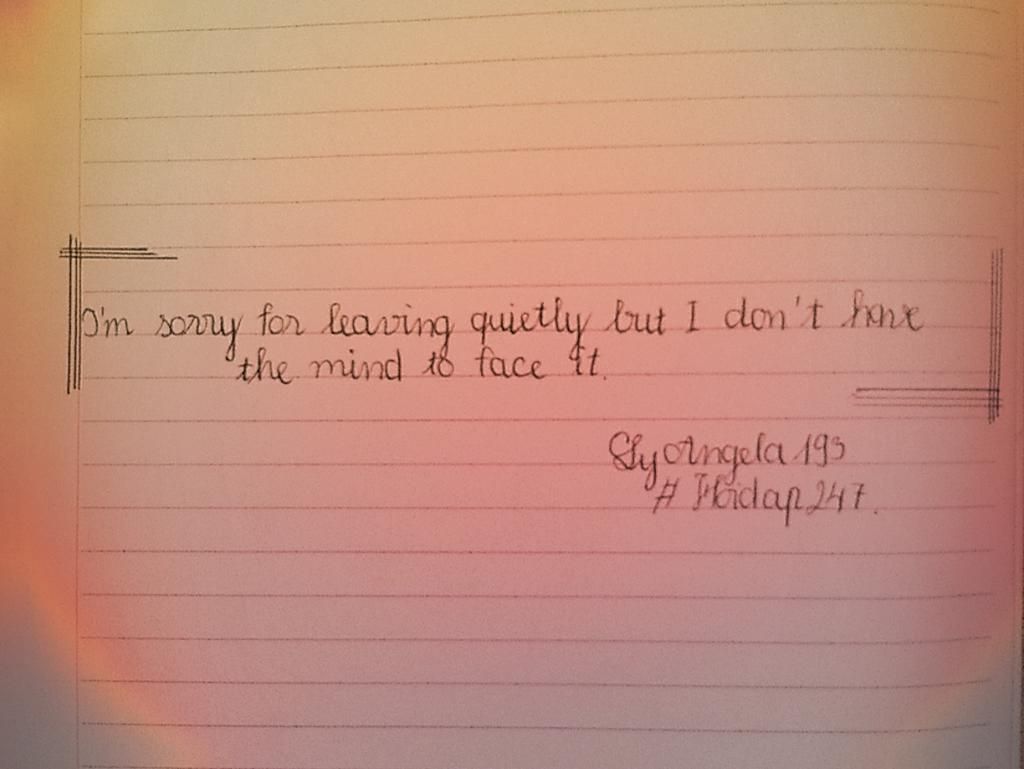 I'm sorry for leaving quietly but I don't have
the mind to face it.
SlyAngela193
#Hoidap247.